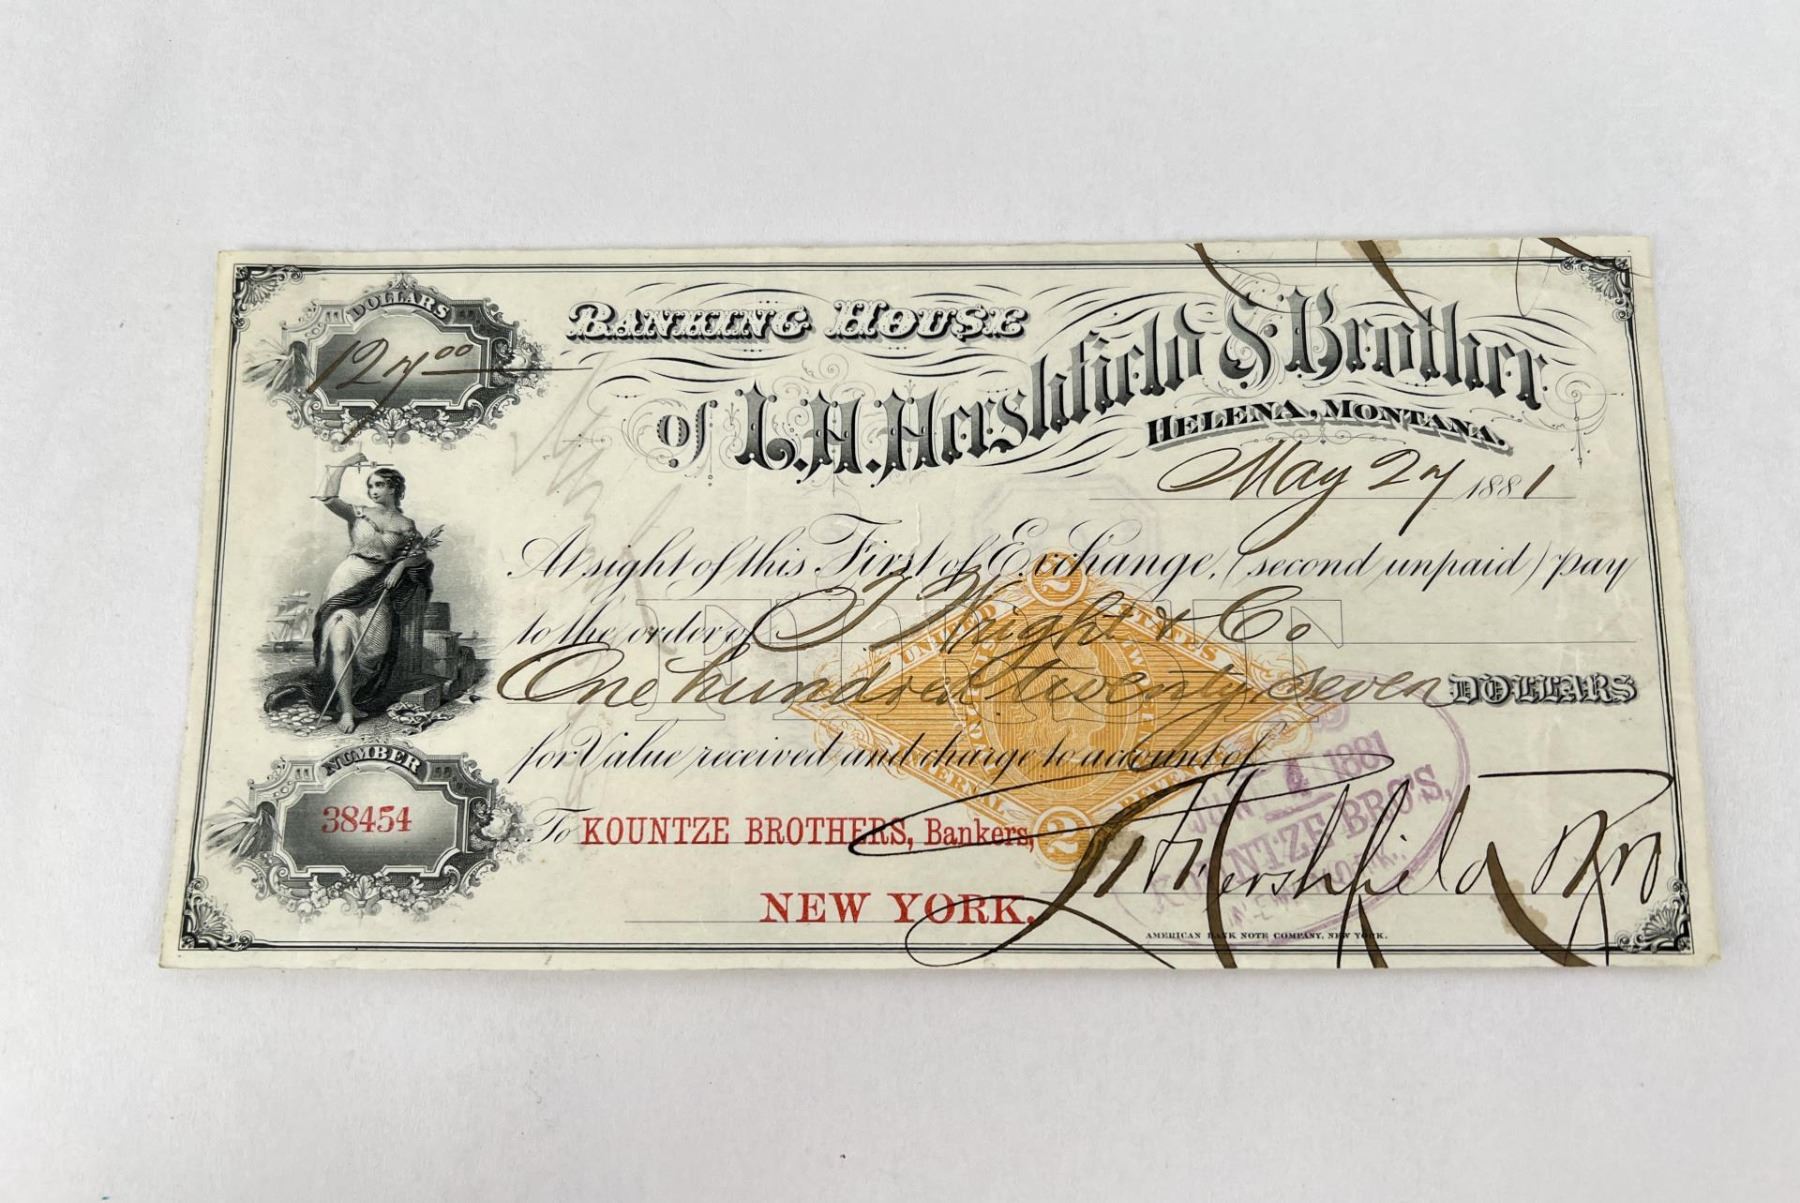 DOLLARS
127 00
BANKING HOUSE
of L.H. Hershfield & Brother
HELENA, MONTANA.
May 27 1881
At sight of this First of Exchange, (second unpaid) pay
to the order of T Wright & Co
One hundred twenty seven DOLLARS
for Value received and charge to account of
NUMBER
38454
To KOUNTZE BROTHERS, Bankers,
NEW YORK.
L H Hershfield & Bro
AMERICAN BANK NOTE COMPANY, NEW YORK.
FIRST
2
UNITED STATES
INTERNAL REVENUE
2
4 1881
KOUNTZE BRO'S.
NEW YORK.